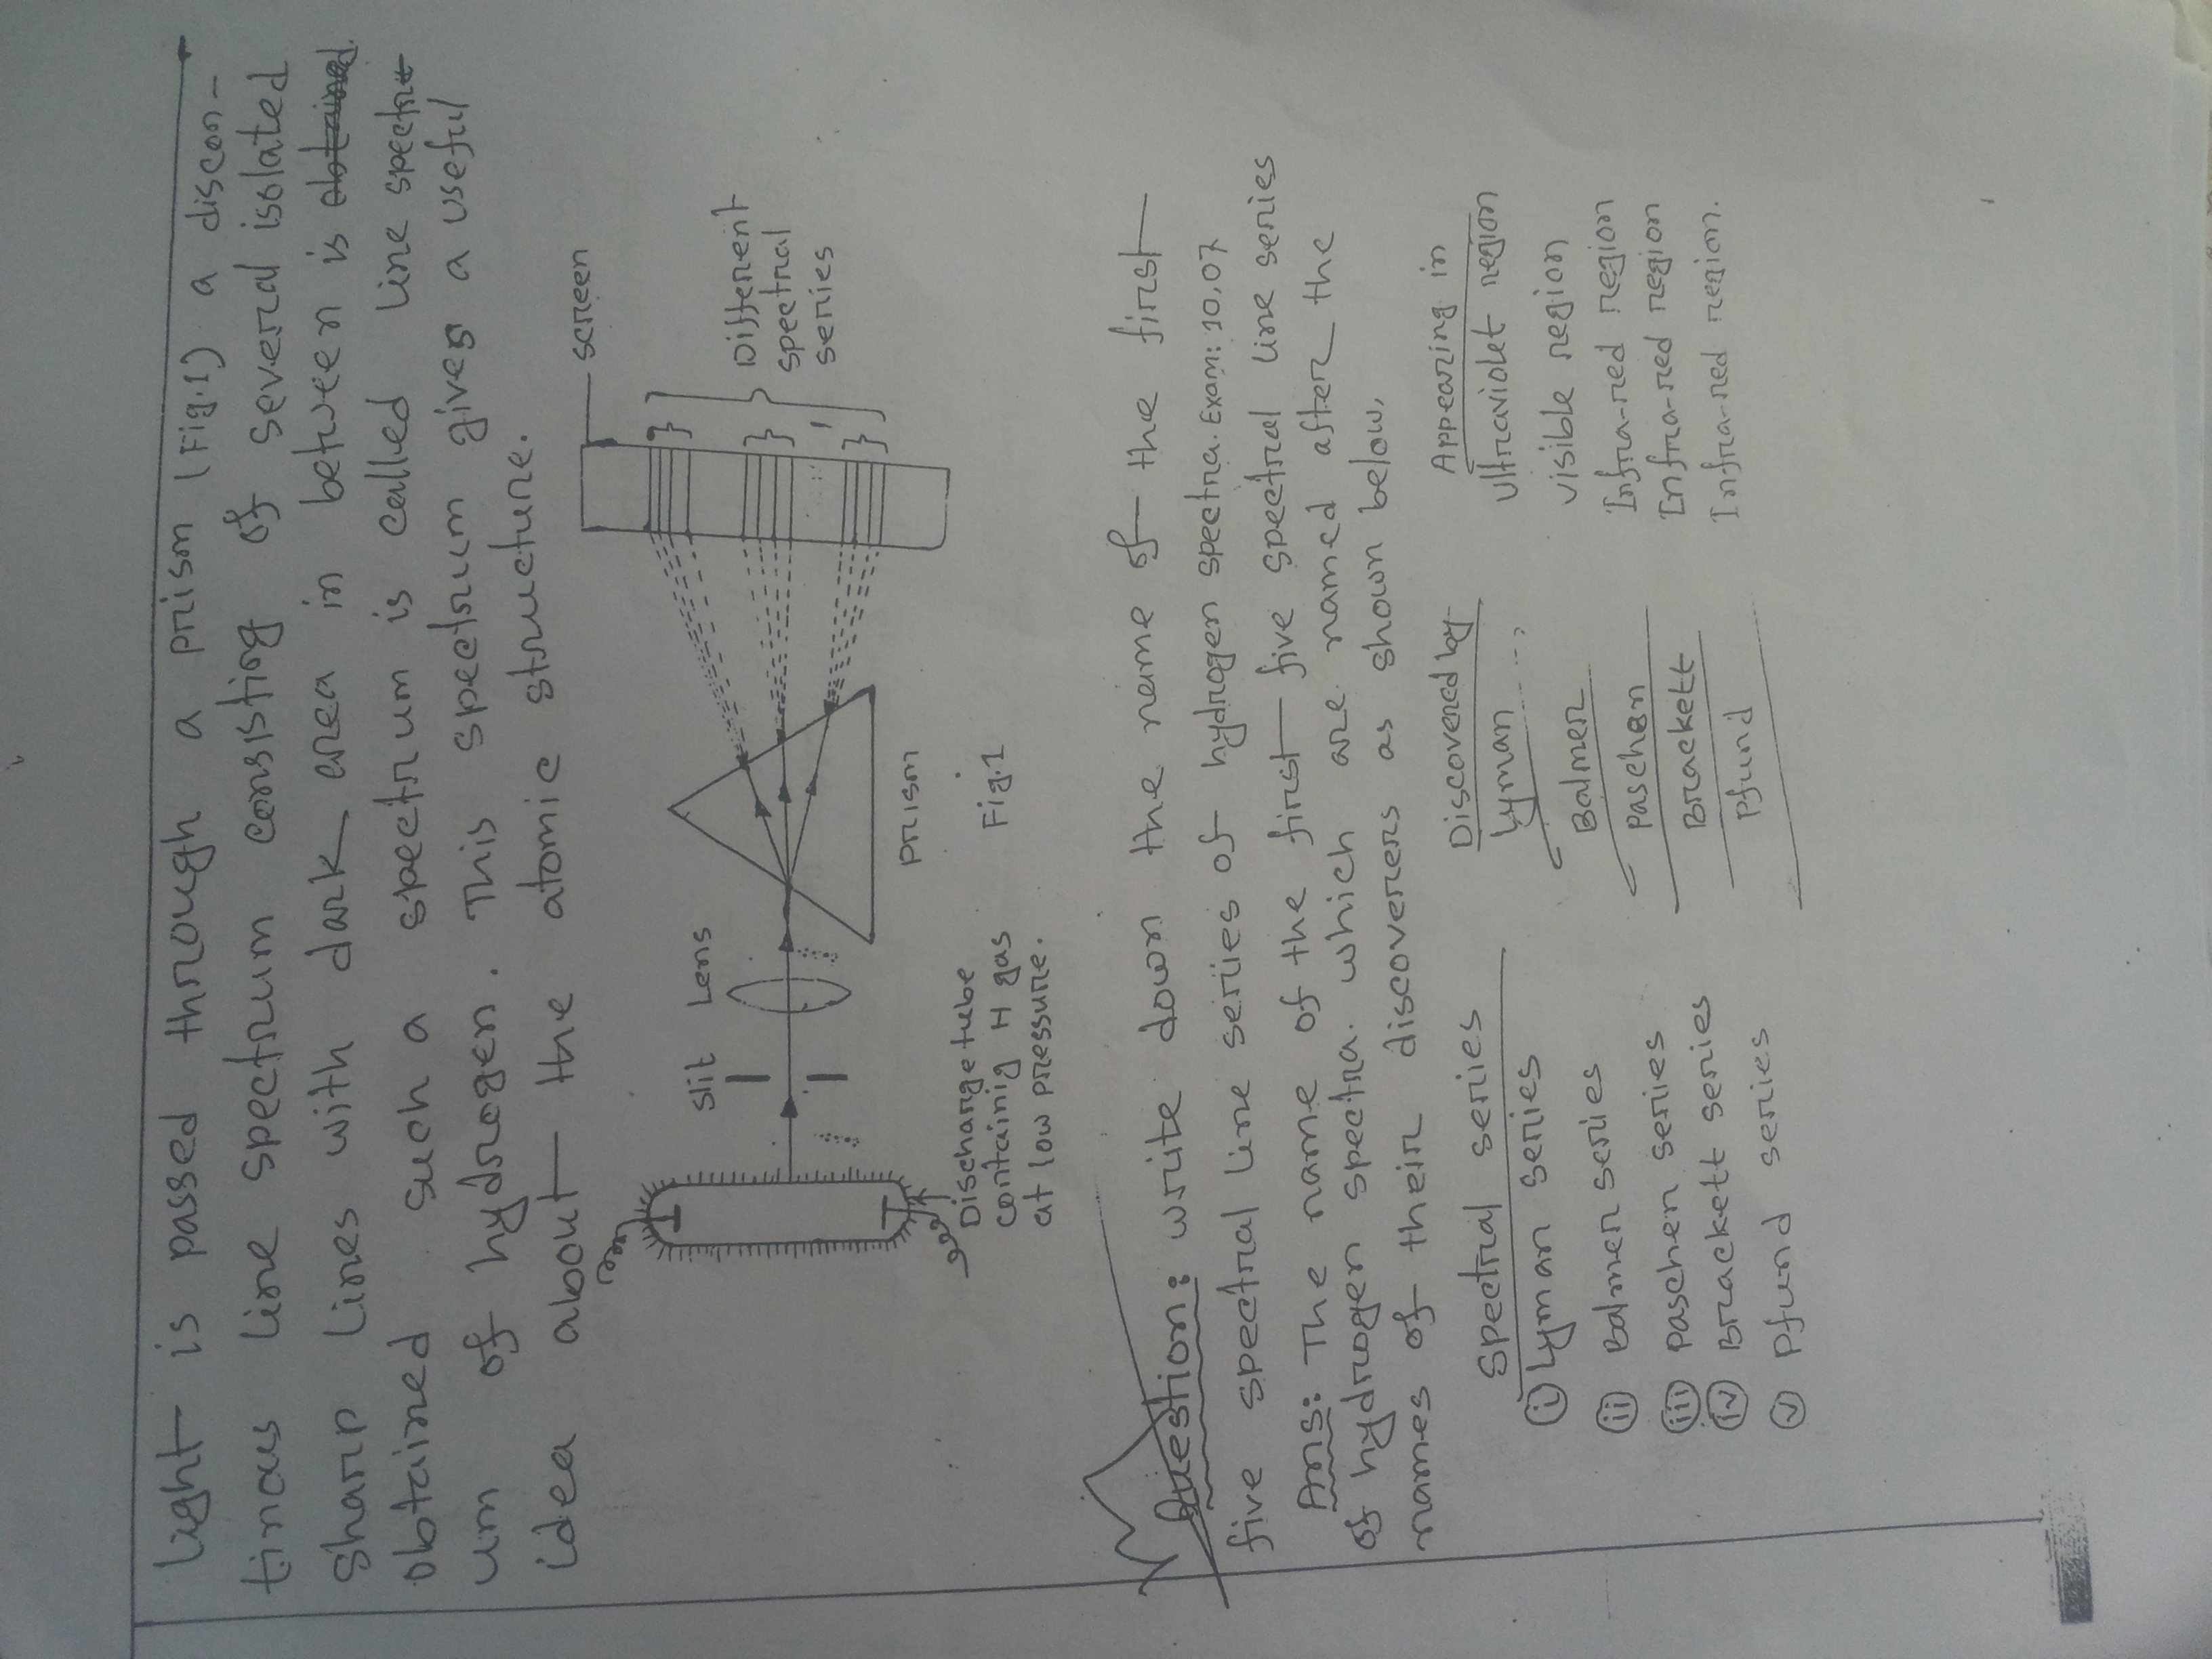 light is passed through a prism (Fig.1) a discon-
tinous line spectrum consisting of several isolated
sharp lines with dark area in between is obtained.
obtained such a spectrum is called line spectr
um of hydrogen. This spectrum gives a useful
idea about the atomic structure.
screen
Slit Lens
Different
spectral
series
Prism
Discharge tube
containig H gas
at low pressure.
Fig.1
Question: write down the name of the first
five spectral line series of hydrogen spectra. Exam: 10,07
Ans: The name of the first five spectral line series
of hydrogen spectra. which are named after the
names of their discoverers as shown below,
Spectral series Discovered by Appearing in
(i) Lyman series Lyman ultraviolet region
(ii) Balmer series Balmer visible region
(iii) Paschen series Paschen Infra-red region
(iv) Brackett series Brackett Infra-red region
(v) Pfund series Pfund Infra-red region.